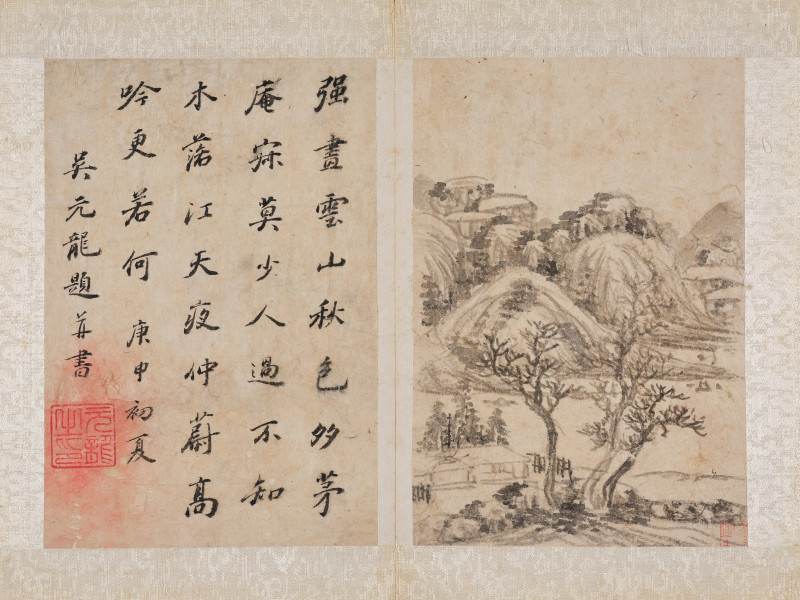 强畫雲山秋色多茅
庵寂莫少人過不知
木落江天夜仲蔚高
吟更若何 庚申初夏
吴元龍題并書
元龍之印